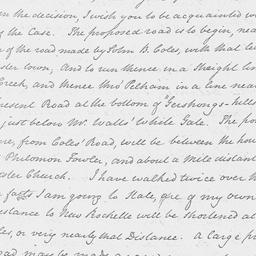 the decision, I wish you to be acquainted w
of the Case. The proposed road is to begin, nea
of the road made by John B. Coles, with that le
ster town, and to run thence in a straight lin
Creek, and thence thro' Pelham in a line near
resent Road at the bottom of Gershongs-hill
just below Mr. Walls' White Gate. The po
e, from Coles' Road, will be between the hou
Philemon Fowler, and about a Mile distant
ster Church. I have walked twice over th
facts I am going to State, are of my own
istance to New Rochelle will be shortened at
les, or very nearly that Distance. A large pr
oad may be made